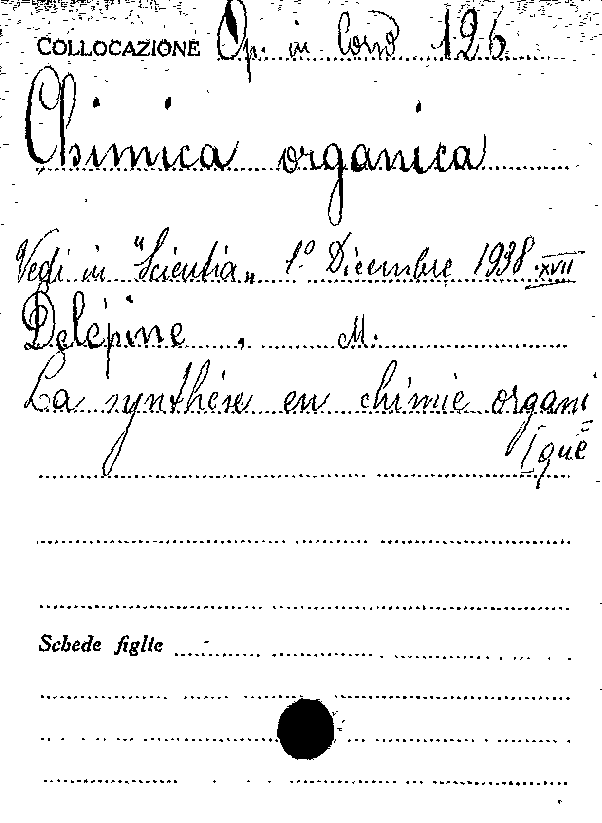 COLLOCAZIONE Op. in Corso 126
Chimica organica
Vedi in "Scientia„ 1° Dicembre 1938·XVII
Delépine, M.
La synthése en chimie organi=
[que
Schede figlie